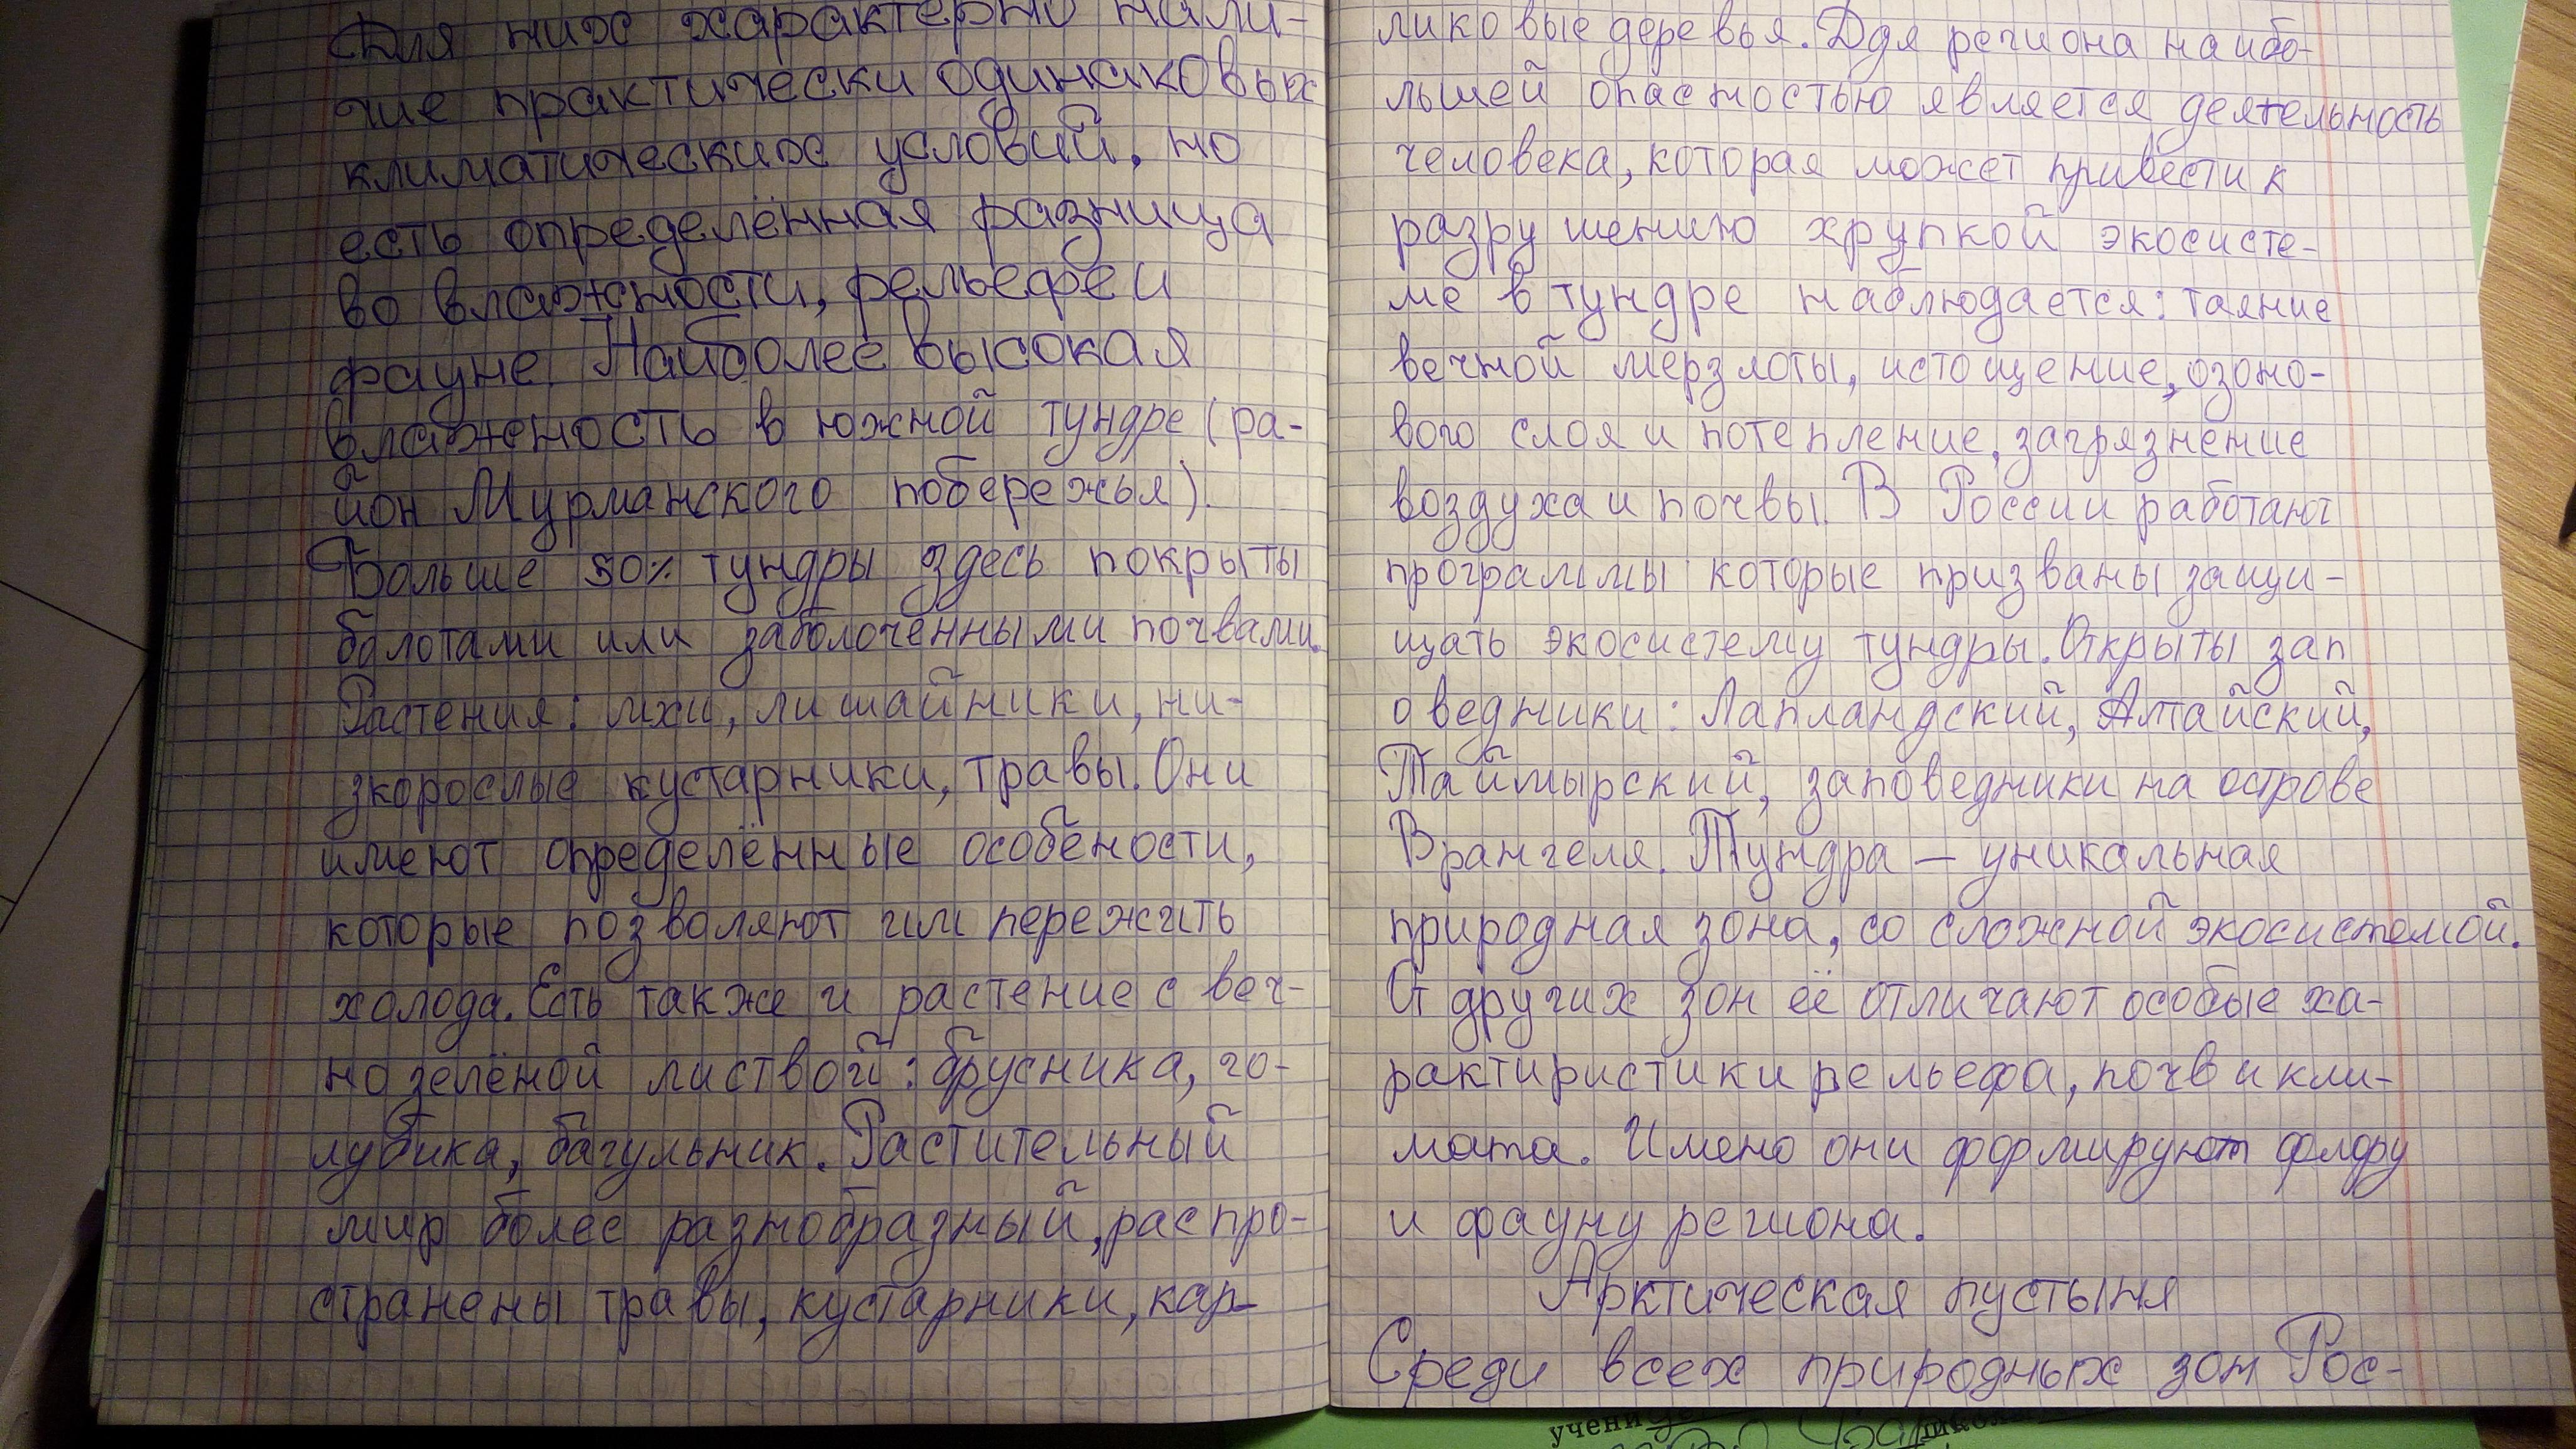 Для них характерно нали-
чие практически одинаковых
климатических условий, но
есть определённая разница
во влажности, рельефе и
фауне. Наиболее высокая
влажность в южной тундре (ра-
йон Мурманского побережья).
Больше 50% тундры здесь покрыты
болотами или заболоченными почвами.
Растения: мхи, лишайники, ни-
зкорослые кустарники, травы. Они
имеют определённые особености,
которые позволяют им пережить
холода. Есть также и растение с веч-
но зелёной листвой: брусника, го-
лубика, багульник. Растительный
мир более разнобразный, распро-
странены травы, кустарники, кар-
ликовые деревья. Для региона наибо-
льшей опасностью является деятельность
человека, которая может привести к
разрушению хрупкой экосисте-
ме в тундре наблюдается: таяние
вечной мерзлоты, истощение, озоно-
вого слоя и потепление, загрязнение
воздуха и почвы. В России работают
программы которые призваны защи-
щать экосистему тундры. Открыты зап
оведники: Лапландский, Алтайский,
Таймырский, заповедники на острове
Врангеля. Тундра — уникальная
природная зона, со сложной экосистемой.
От других зон её отличают особые ха-
рактиристики рельефа, почв и кли-
мата. Имено они формируют флору
и фауну региона.
Арктическая пустыня
Среди всех природных зон Рос-